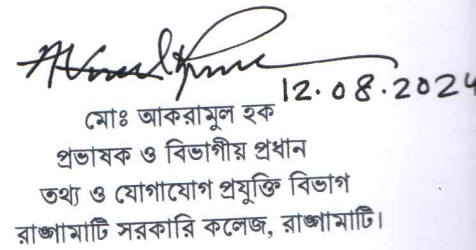 12.08.2024
মোঃ আকরামুল হক
প্রভাষক ও বিভাগীয় প্রধান
তথ্য ও যোগাযোগ প্রযুক্তি বিভাগ
রাঙ্গামাটি সরকারি কলেজ, রাঙ্গামাটি।